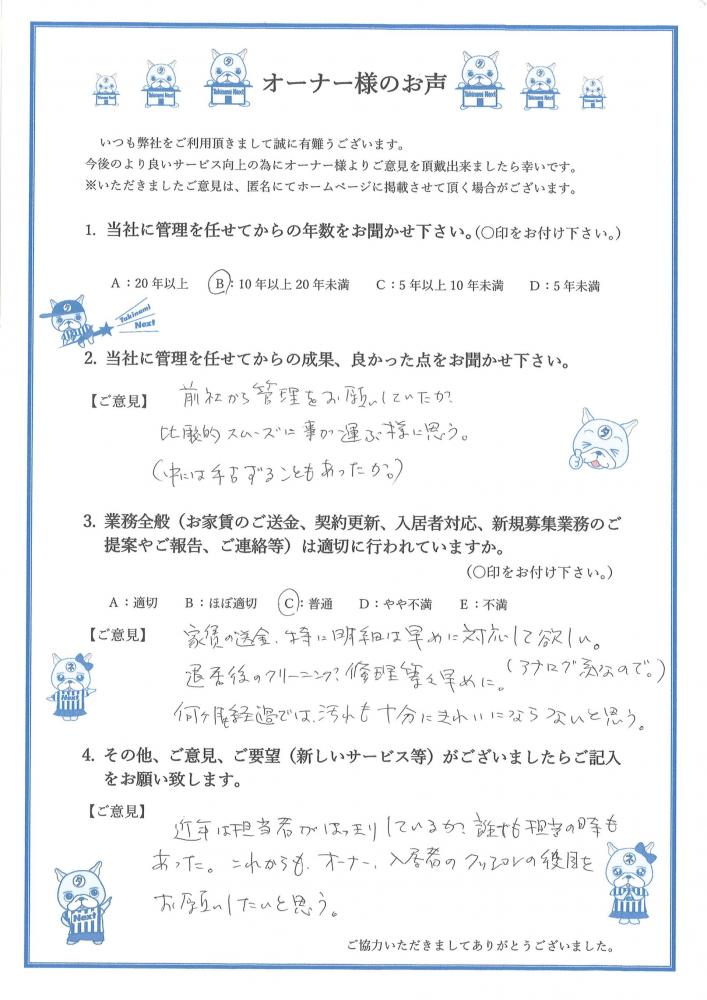 オーナー様のお声
いつも弊社をご利用頂きまして誠に有難うございます。
今後のより良いサービス向上の為にオーナー様よりご意見を頂戴出来ましたら幸いです。
※いただきましたご意見は、匿名にてホームページに掲載させて頂く場合がございます。
1. 当社に管理を任せてからの年数をお聞かせ下さい。(〇印をお付け下さい。)
A：20年以上 B：10年以上20年未満 C：5年以上10年未満 D：5年未満
Takinami Next
2. 当社に管理を任せてからの成果、良かった点をお聞かせ下さい。
【ご意見】 前社から管理をお願いしていたが
比較的スムーズに事が運ぶ様に思う。
(中には手こずることもあったが。)
3. 業務全般（お家賃のご送金、契約更新、入居者対応、新規募集業務のご
提案やご報告、ご連絡等）は適切に行われていますか。
(〇印をお付け下さい。)
A：適切 B：ほぼ適切 C：普通 D：やや不満 E：不満
【ご意見】 家賃の送金、特に明細は早めに対応して欲しい。
(アナログ派なので。)
退居後のクリーニング、修理等も早めに。
何ヶ月経過では、汚れも十分にきれいにならないと思う。
4. その他、ご意見、ご要望（新しいサービス等）がございましたらご記入
をお願い致します。
【ご意見】
近年は担当者がはっきりしているが、誰かも担当の時も
あった。これからも、オーナー、入居者のクッションの役目を
お願いしたいと思う。
ご協力いただきましてありがとうございました。